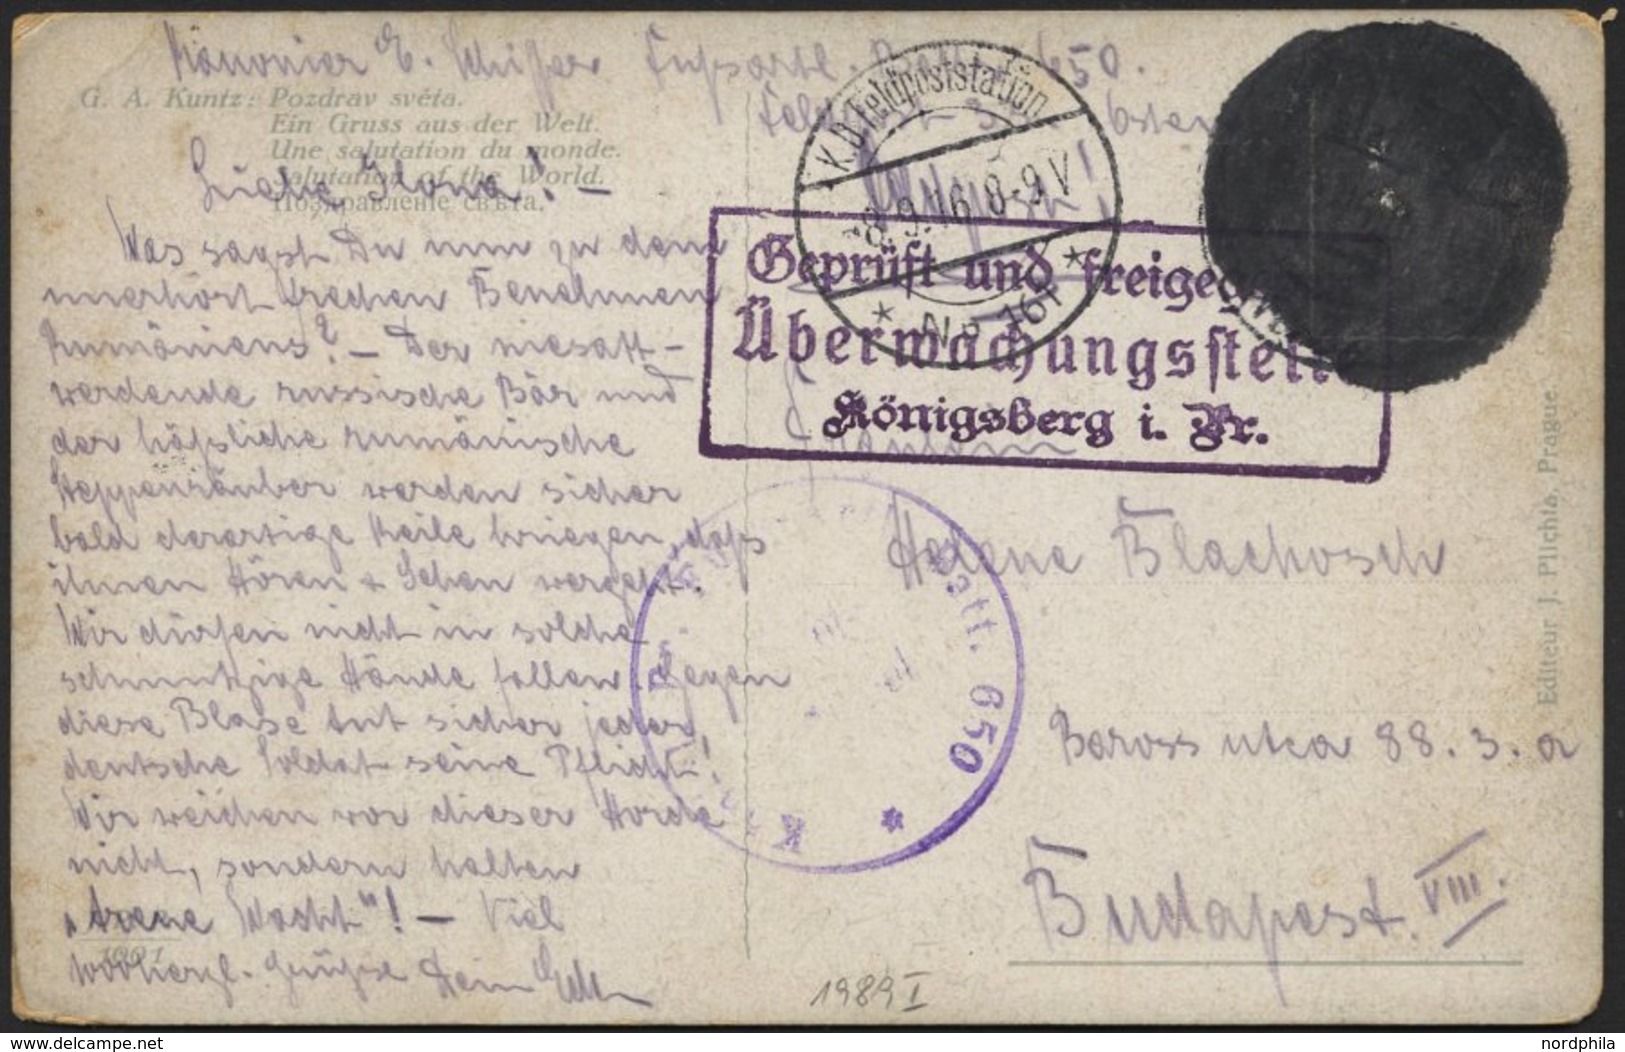 Kanonier E. Schiffer Fussartl. Batt. 650.
G. A. Kuntz: Pozdrav světa.
Ein Gruss aus der Welt.
Une salutation du monde.
Salutation of the World.
Поздравленіе свѣта.
Liebe Ilona! –
Was sagst Du nun zu dem
unerhört frechen Benehmen
Rumäniens? – Der niesatt-
werdende russische Bär und
der häßliche rumänische
Steppenräuber werden sicher
bald derartige Keile kriegen, daß
ihnen Hören + Sehen vergeht.
Wir dürfen nicht in solche
schmutzige Hände fallen. Gegen
diese Blase tut sicher jeder
deutsche Soldat seine Pflicht!
Wir weichen vor dieser Horde
nicht, sondern halten
„treue Wacht"! – Viel
Grüße Dein
K.D. Feldpoststation
8.9.16 8-9V
* No 161 *
Geprüft und
Überwachungsstelle
Königsberg i. Pr.
Batt. 650 *
Helene Blachosch
Baross utca 88. 3. a
Budapest. VIII.
Editeur J. Plichta, Prague
1989 I
delcampe.net
nordphila